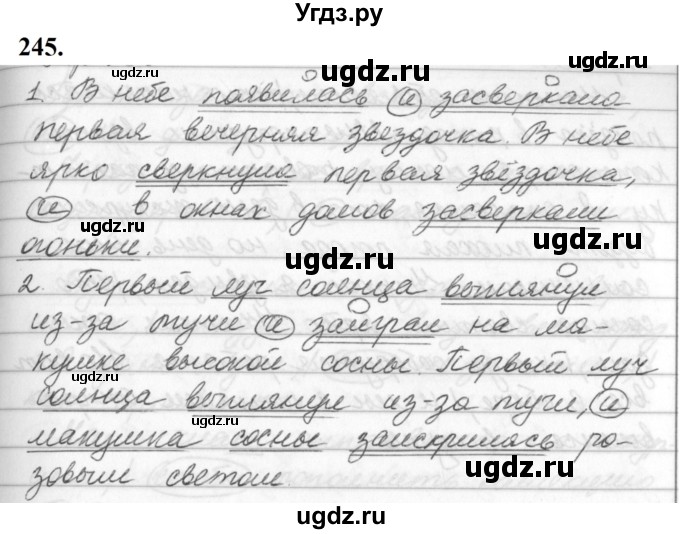 Угдз.ру
245.
ugdz.ru
1. В небе появилась и засверкала
ugdz.ru
первая вечерняя звездочка. В небе
ugdz.ru
ярко сверкнула первая звёздочка,
и в окнах домов засверкали
ugdz.ru
ugdz.ru
огоньки.
2. Первый луч солнца выглянул
ugdz.ru
из-за тучи и заиграл на ма-
кушке высокой сосны. Первый луч
ugdz.ru
ugdz.ru
солнца выглянул из-за тучи, и
макушка сосны заискрилась ро-
ugdz.ru
ugdz.ru
зовым светом.
ugdz.ru